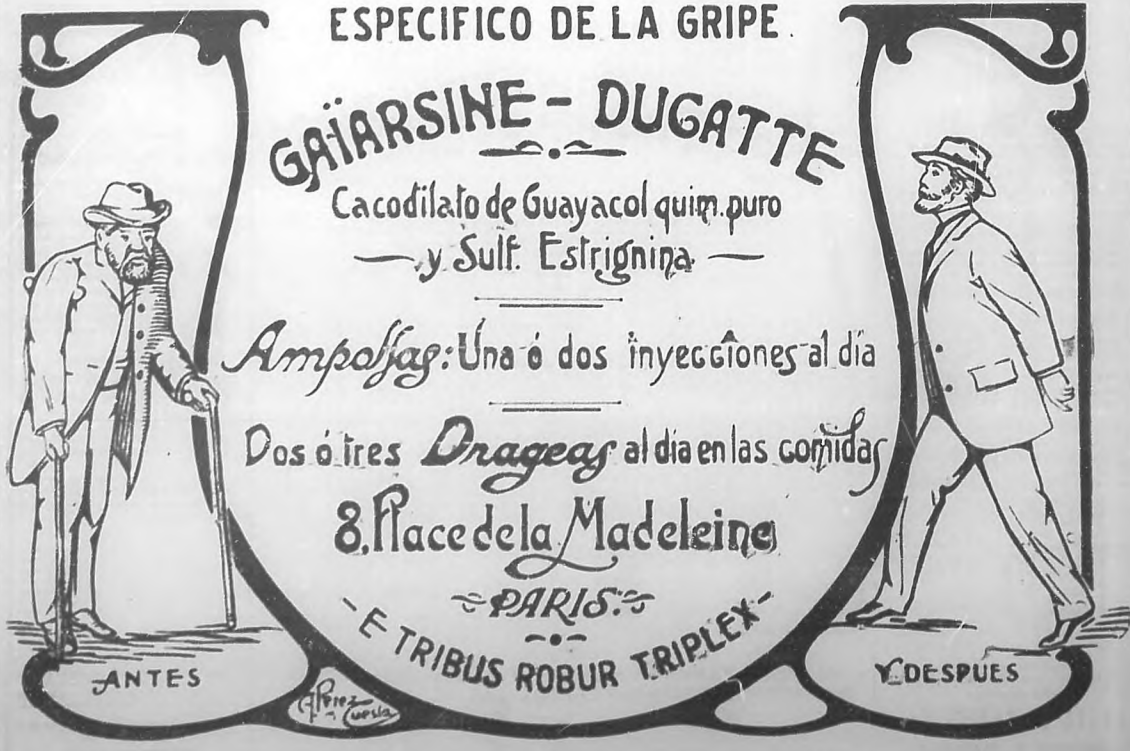 ESPECIFICO DE LA GRIPE.
GAÏARSINE - DUGATTE
Cacodilato de Guayacol quim. puro
y Sulf. Estrignina
Ampollas: Una ó dos inyecciones al día
Dos ó tres Drageas al dia en las comidas
8, Place de la Madeleine
PARIS.
- E TRIBUS ROBUR TRIPLEX -
ANTES
Y DESPUES
Perez
Cuesta